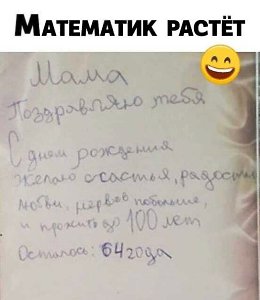 Математик растёт
Мама
Поздравляю тебя
С днем рождения
Желаю счастья, радости
любви, нервов побольше,
и прожить до 100 лет
Осталось: 64 года